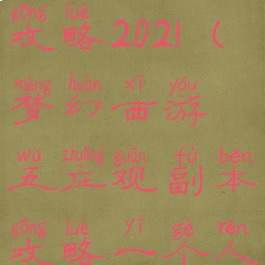 gōng lüè
攻略2021（
mèng huàn xī yóu
梦幻西游
wǔ zhuāng guān fù běn
五庄观副本
gōng lüè yí gè rén
攻略一个人